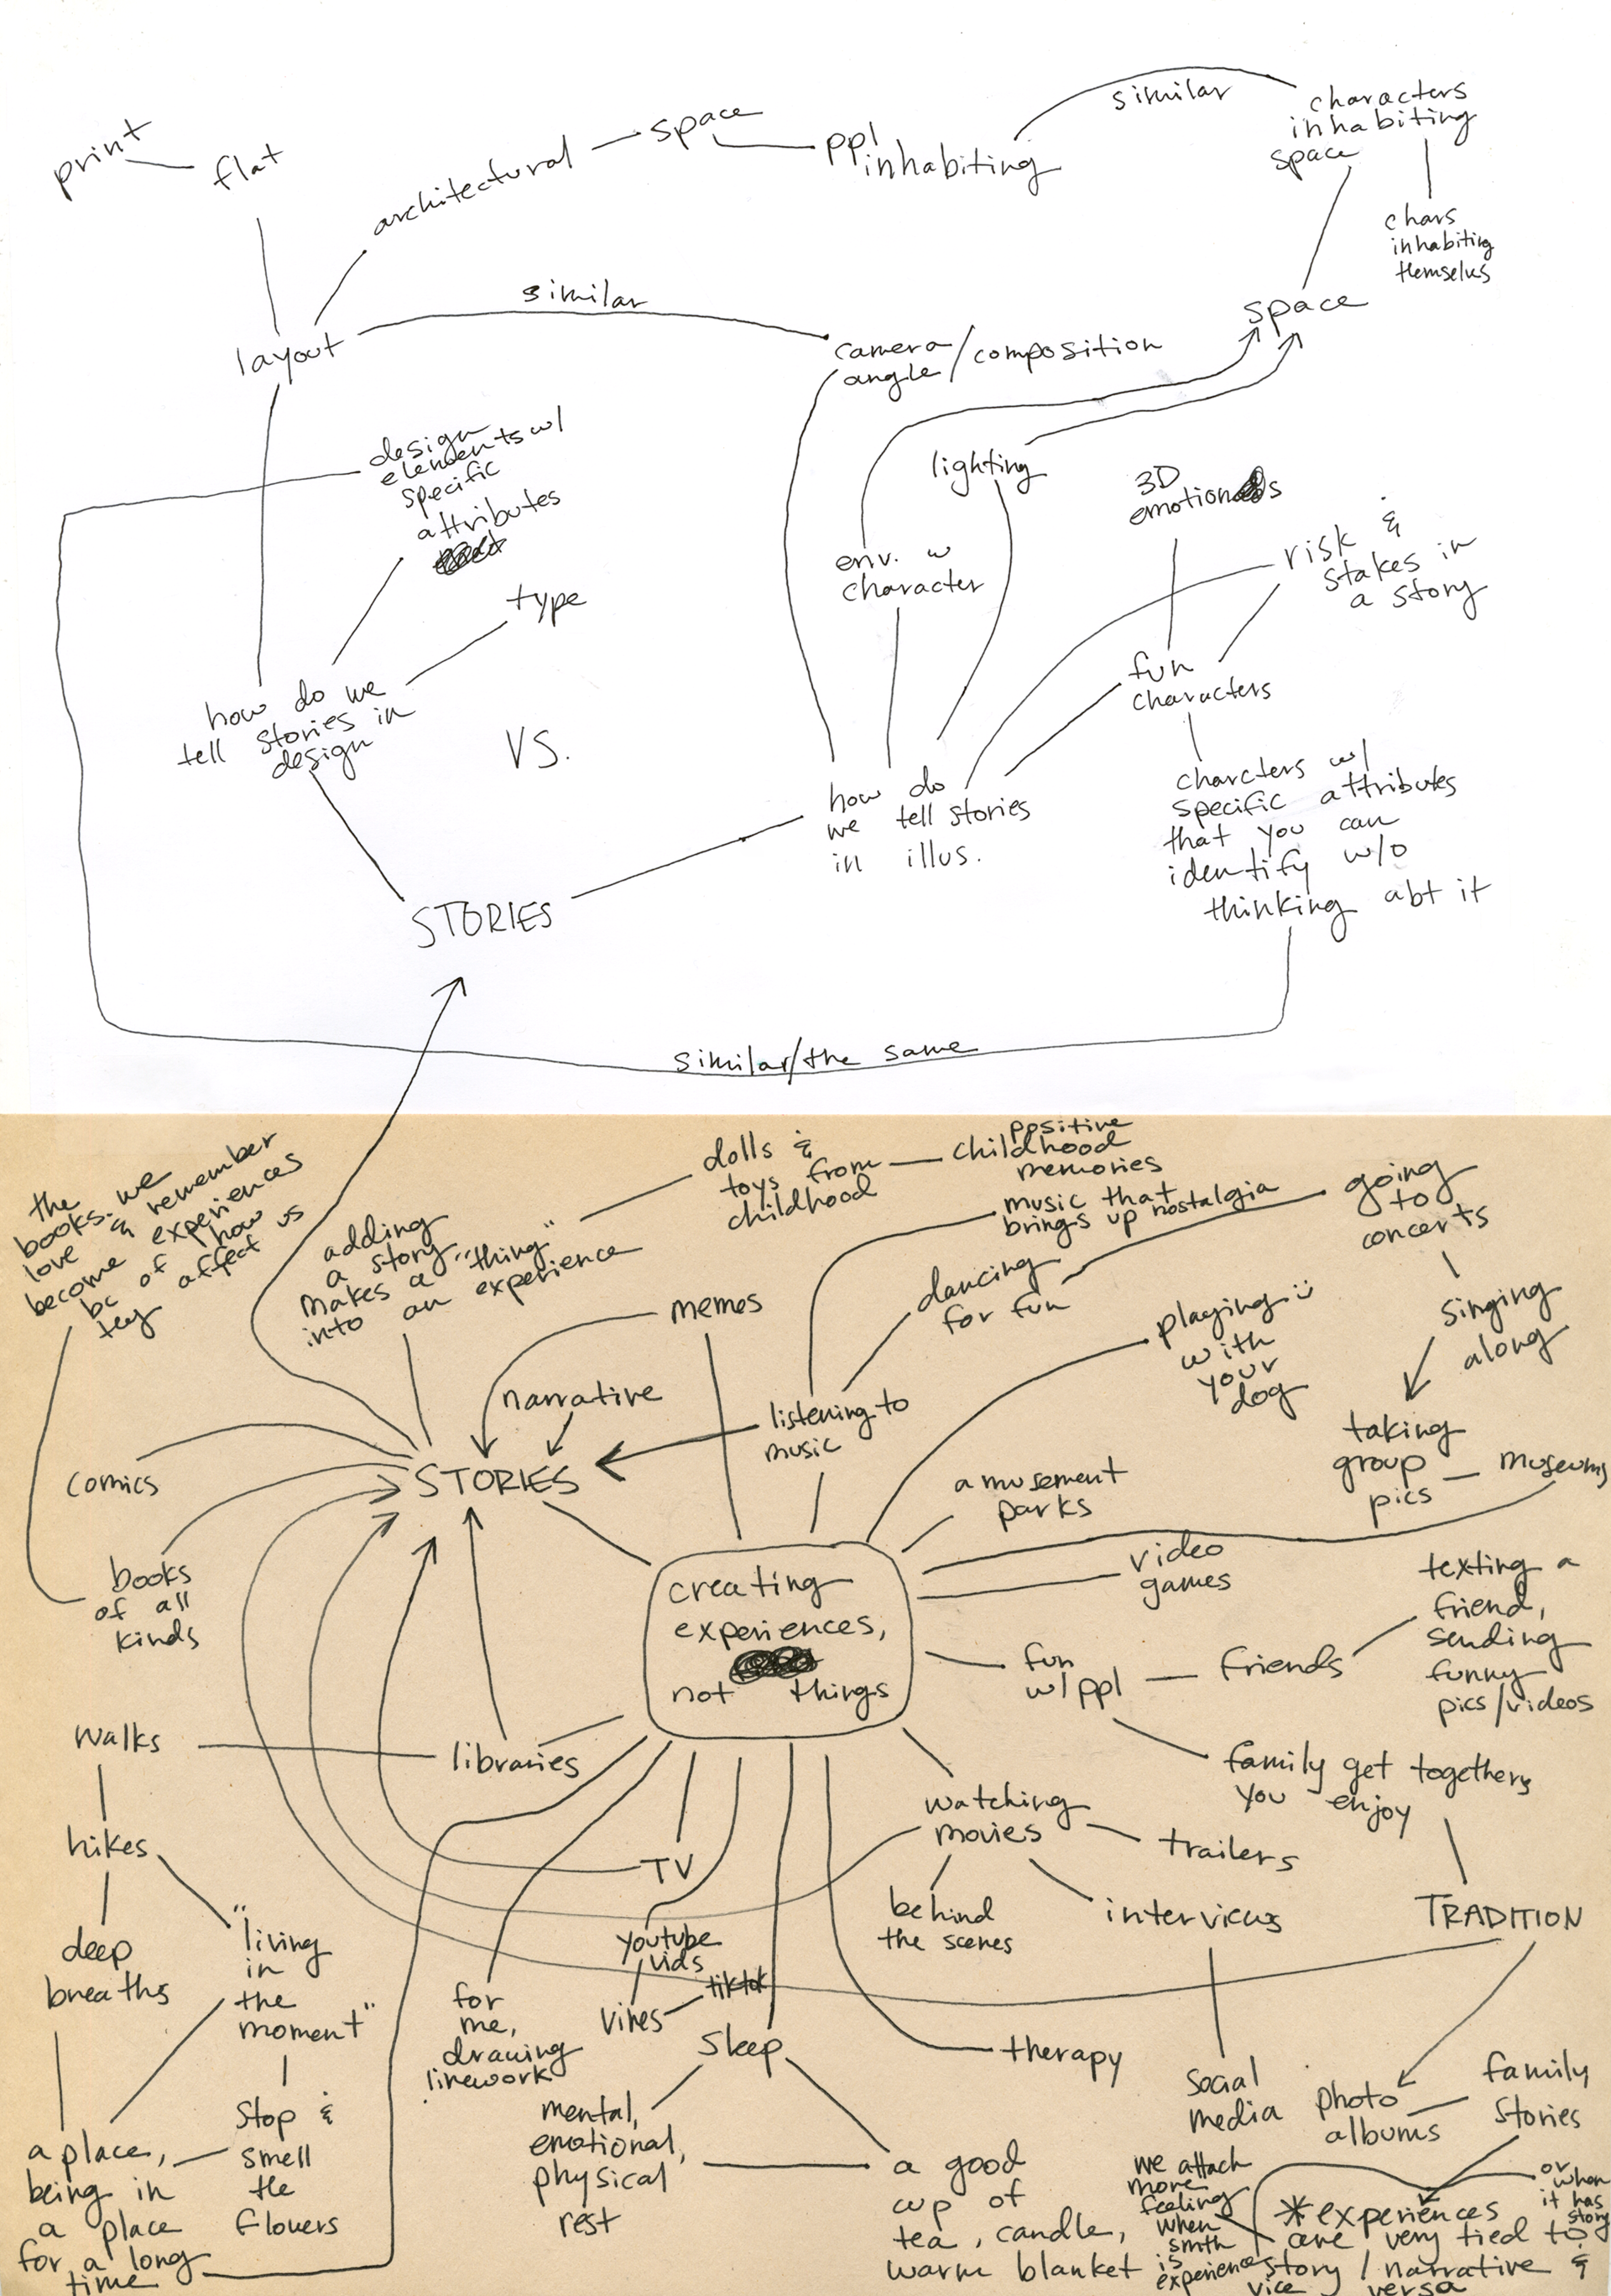 print
flat
architectural
space
ppl
inhabiting
similar
characters
inhabiting
space
chars
inhabiting
themselvs
space
layout
similar
camera
angle/composition
design
elements w/
specific
attributes
type
lighting
3D
emotions
env. w
character
risk &
stakes in
a story
fun
characters
how do we
tell stories in
design
VS.
how do
we tell stories
in illus.
charcters w/
specific attributes
that you can
identify w/o
thinking abt it
STORIES
similar/the same
the
books we
love & remember
become experiences
bc of how
they affect us
adding
a story
makes a "thing"
into an experience
dolls &
toys from
childhood
positive
childhood
memories
music that
brings up nostalgia
going
to
concerts
dancing
for fun
memes
playing :)
with
your
dog
singing
along
narrative
listening to
music
taking
group
pics
museums
comics
STORIES
amusement
parks
books
of all
kinds
creating
experiences,
not things
video
games
texting a
friend,
sending
funny
pics/videos
fun
w/ppl
friends
walks
libraries
family get togethers
you enjoy
hikes
watching
movies
trailers
TV
behind
the scenes
interviews
TRADITION
deep
breaths
"living
in
the
moment"
youtube
vids
tiktok
vines
for
me,
drawing
linework
sleep
therapy
social
media
photo
albums
family
stories
stop &
smell
the
flowers
a place,
being in
a place
for a long
time
mental,
emotional,
physical
rest
a good
cup of
tea, candle,
warm blanket
we attach
more
feeling
when
smth
is
experience
*experiences
are very tied to
story / narrative &
vice versa
or
when
it has
story